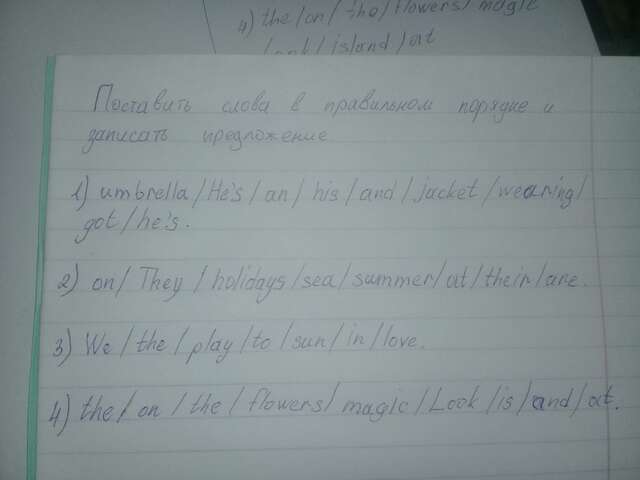 4) the / on / the / flowers / magic
look / island / at
Поставить слова в правильном порядке и
записать предложение
1) umbrella / He's / an / his / and / jacket / wearing /
got / he's.
2) on / They / holidays / sea / summer / at / their / are.
3) We / the / play / to / sun / in / love.
4) the / on / the / flowers / magic / Look / is / and / at.